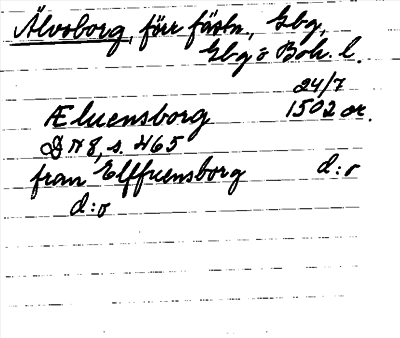 Älvsborg, förr fästn., Gbg,
Gbg o Boh. l.
24/7
Æluensborg 1502 or.
H 8, s. 465
fran Elffuensborg d:o
d:o